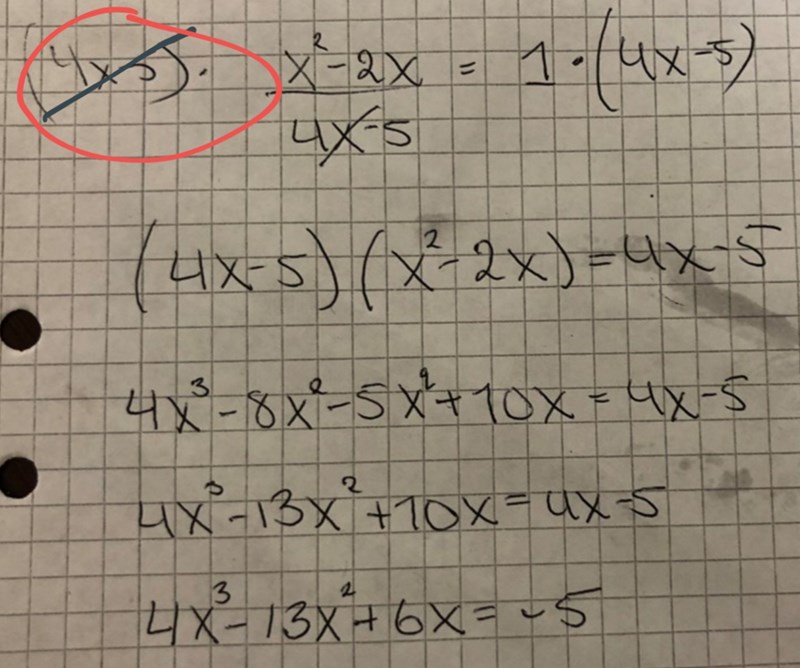 (4x-5) · x²-2x / 4x-5 = 1 · (4x-5)
(4x-5)(x²-2x)=4x-5
4x³-8x²-5x²+10x=4x-5
4x³-13x²+10x=4x-5
4x³-13x²+6x=-5